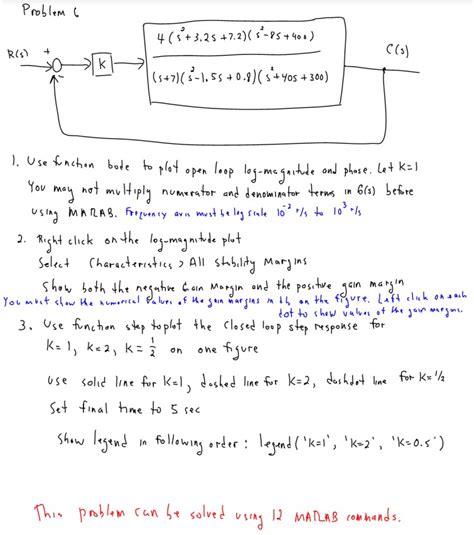 Problem 6
4(s²+3.2s+7.2)(s²-8s+400)
R(s) + K C(s)
-
(s+7)(s²-1.5s+0.8)(s²+40s+300)
1. Use function bode to plot open loop log-magnitude and phase. Let K=1
You may not multiply numerator and denominator terms in G(s) before
using MATLAB. Frequency axis must be log scale 10⁻² r/s to 10³ r/s
2. Right click on the log-magnitude plot
Select Characteristics > All Stability Margins
Show both the negative Gain Margin and the positive gain margin
You must show the numerical values of the gain margins in db on the figure. Left click on each
dot to show values of the gain margins.
3. Use function step to plot the closed loop step response for
K=1, K=2, K=1/2 on one figure
use solid line for K=1, dashed line for K=2, dashdot line for K=1/2
Set final time to 5 sec
Show legend in following order: legend('K=1', 'K=2', 'K=0.5')
This problem can be solved using 12 MATLAB commands.